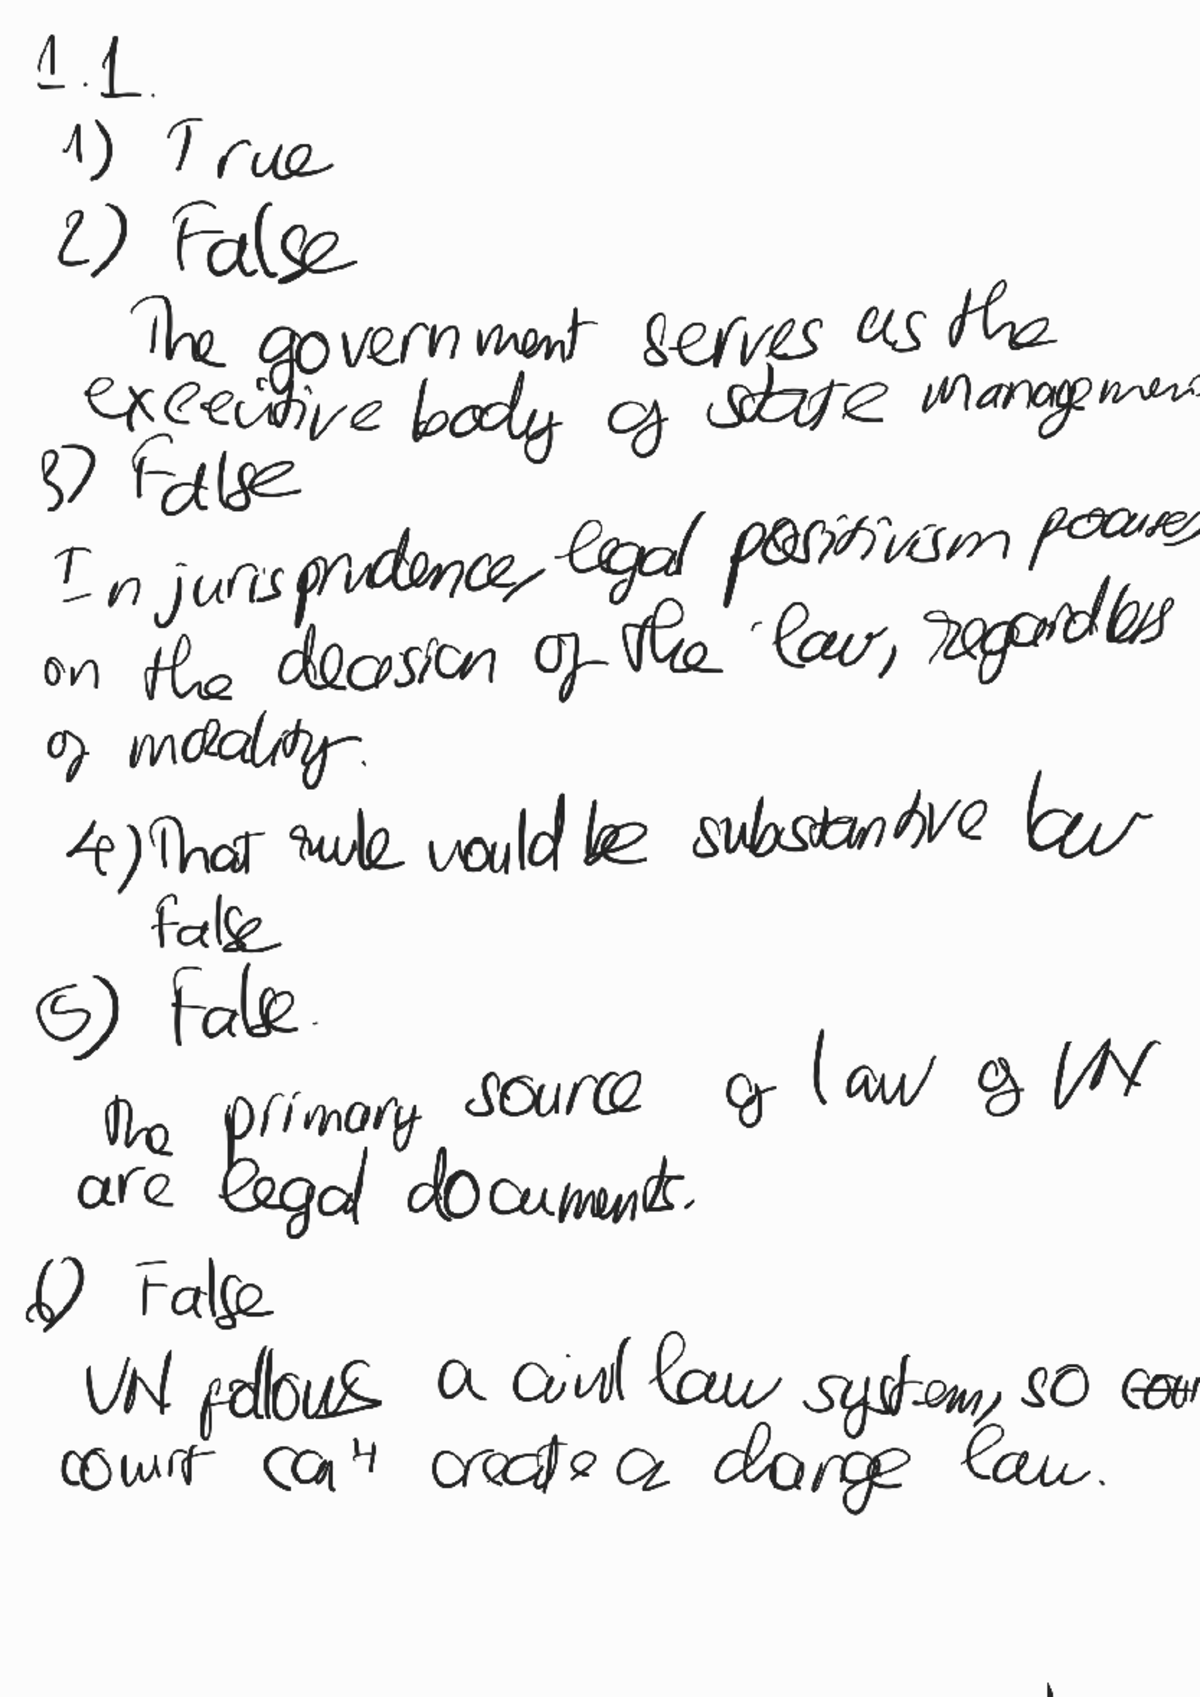 1.1.
1) True
2) False
The government serves as the
executive body of state management
3) False
In jurisprudence, legal positivism focuses
on the decesion of the law, regardless
of morality.
4) That rule would be substantive law
False
5) False.
The primary source of law of VN
are legal documents.
6) False
VN follows a civil law system, so cour
court can't create a change law.